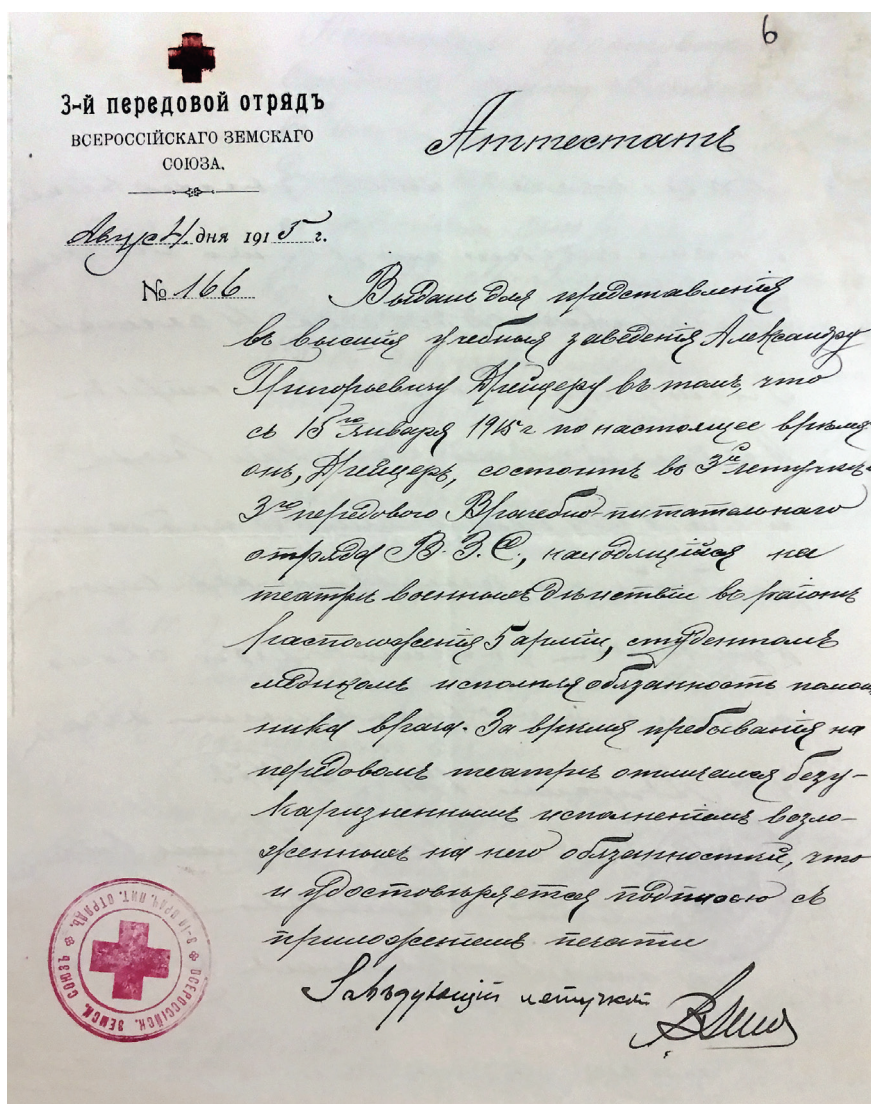 6
3-й передовой отрядъ
ВСЕРОССІЙСКАГО ЗЕМСКАГО
СОЮЗА.
Аттестатъ
Авгус 4 дня 1915 г.
№ 166
Выданъ для представленія
въ высшія учебныя заведенія Александру
Григорьевичу Дрейцеру въ томъ, что
съ 15го Января 1915 г по настоящее время
онъ, Дрейцеръ, состоитъ въ 3й летучкѣ
3го передового Врачебно-питательнаго
отряда В.З.С., находящійся на
театрѣ военныхъ дѣйствій въ районѣ
расположенія 5 арміи, студентомъ
медикомъ исполняя обязанность помощ
ника врача. За время пребыванія на
передовомъ театрѣ отличался безу-
каризненнымъ исполненіемъ возло-
женныхъ на него обязанностей, что
и удостовѣряется подписью съ
приложеніемъ печати
Завѣдующій летучкой
ВСЕРОССІЙСК. ЗЕМСК. СОЮЗЪ 3-Й ВРАЧ. ПИТ. ОТРЯДЪ.